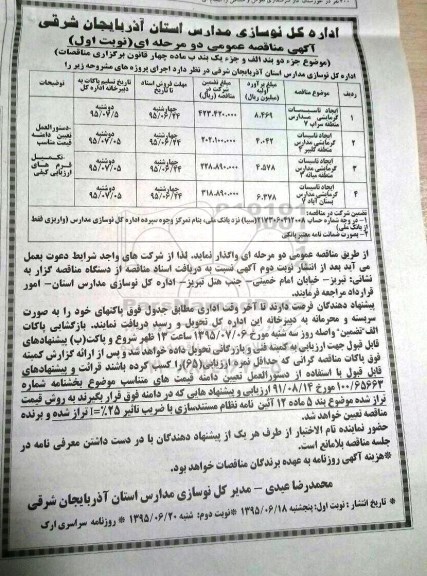 اداره کل نوسازی مدارس استان آذربایجان شرقی
آگهی مناقصه عمومی دو مرحله ای (نوبت اول)
(موضوع جزء دو بند الف و جزء یک بند ب ماده چهار قانون برگزاری مناقصات)
اداره کل نوسازی مدارس استان آذربایجان شرقی در نظر دارد اجرای پروژه های مشروحه زیر را
ردیف موضوع مناقصه مبلغ برآورد اولیه (میلیون ریال) مبلغ تضمین شرکت در مناقصه (ریال) مهلت فروش اسناد تا تاریخ تاریخ تسلیم پاکات به دبیرخانه اداره کل توضیحات
۱ ایجاد تاسیسات گرمایشی مدارس منطقه سراب ۷ ۸.۴۶۹ ۴۲۳.۴۲۰.۰۰۰ چهارشنبه ۹۵/۰۶/۲۴ دوشنبه ۹۵/۰۷/۵
۲ ایجاد تاسیسات گرمایشی مدارس منطقه کلیبر ۴ ۴.۰۴۲ ۲۰۲.۱۰۰.۰۰۰ چهارشنبه ۹۵/۰۶/۲۴ دوشنبه ۹۵/۰۷/۰۵ -دستورالعمل تعیین دامنه قیمت مناسب
۳ ایجاد تاسیسات گرمایشی مدارس منطقه میانه ۲ ۴.۵۷۸ ۲۲۸.۸۹۰.۰۰۰ چهارشنبه ۹۵/۰۶/۲۴ دوشنبه ۹۵/۰۷/۰۵ -تکمیل فرم های ارزیابی کیفی
۴ ایجاد تاسیسات گرمایشی مدارس بستان آباد ۷ ۶.۳۷۸ ۳۱۸.۸۹۰.۰۰۰ چهارشنبه ۹۵/۰۶/۲۴ دوشنبه ۹۵/۰۷/۰۵
تضمین شرکت در مناقصه:
۱- در وجه شماره حساب ۲۱۷۳۰۶۰۴۹۲۰۰۸ (سیبا) نزد بانک ملی، بنام تمرکز وجوه سپرده اداره کل نوسازی مدارس (واریزی فقط
از بانک ملی)
۲- بصورت ضمانت نامه معتبر بانکی
از طریق مناقصه عمومی دو مرحله ای واگذار نماید. لذا از شرکت های واجد شرایط دعوت بعمل
می آید بعد از انتشار نوبت دوم آگهی نسبت به دریافت اسناد مناقصه از دستگاه مناقصه گزار به
نشانی: تبریز- خیابان امام خمینی- جنب هتل تبریز- اداره کل نوسازی مدارس استان- امور
قرارداد مراجعه فرمایند.
پیشنهاد دهندگان فرصت دارند تا آخر وقت اداری مطابق جدول فوق پاکتهای خود را به صورت
سربسته و محرمانه به دبیرخانه این اداره کل تحویل و رسید دریافت نمایند. بازگشایی پاکات
الف-تضمین- واصله روز سه شنبه مورخ ۱۳۹۵/۰۷/۰۶ ساعت ۱۳ ظهر شروع و پاکت(ب) پیشنهادهای
قابل قبول جهت ارزیابی به کمیته فنی و بازرگانی تحویل داده خواهد شد و پس از ارائه گزارش کمیته
فوق پاکات مناقصه گرانی که حداقل نمره ارزیابی(۶۵) را کسب کرده باشند قرائت و پیشنهادهای
قابل قبول با استفاده از دستورالعمل تعیین دامنه قیمت های متناسب موضوع بخشنامه شماره
۱۰۰/۶۵۶۶۳ مورخ ۹۱/۰۸/۱۴ ارزیابی و پیشنهاد هایی که در دامنه فوق قرار بگیرند به روش قیمت
تراز شده موضوع بند ۵ ماده ۱۲ آئین نامه نظام مستندسازی با ضریب تاثیر ۲۵٪=i تراز شده و برنده
مناقصه تعیین خواهد شد.
حضور نماینده تام الاختیار از طرف هر یک از پیشنهاد دهندگان با در دست داشتن معرفی نامه در
جلسه مناقصه بلامانع است.
*هزینه آگهی روزنامه به عهده برندگان مناقصات خواهد بود.
محمدرضا عبدی - مدیر کل نوسازی مدارس استان آذربایجان شرقی
* تاریخ انتشار: نوبت اول: پنجشنبه ۱۳۹۵/۰۶/۱۸ *نوبت دوم: شنبه ۱۳۹۵/۰۶/۲۰ * روزنامه سراسری ارک